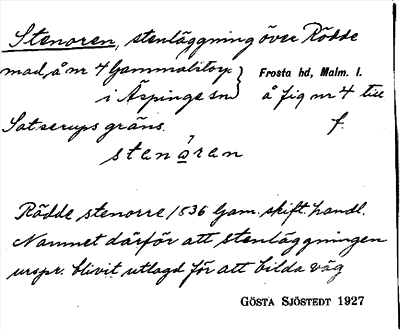 Stenoren, stenläggning över Rödde
mad, å nr 4 Gammalstorp } Frosta hd, Malm. l.
i Äspinge sn } å fig nr 4 till
Satserups gräns. f.
stenǫren
Rödde stenorre 1836 Gam. skift. handl.
Namnet därför att stenläggningen
urspr. blivit utlagd för att bilda väg
GÖSTA SJÖSTEDT 1927